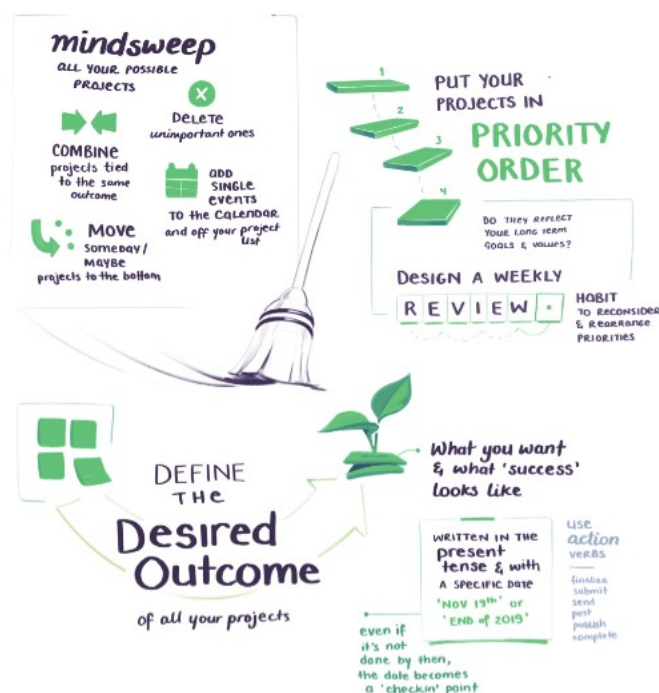 mindsweep
ALL YOUR POSSIBLE
PROJECTS
DELETE
unimportant ones
COMBINE
projects tied
to the same
outcome
ADD
SINGLE
EVENTS
TO THE CALENDAR
and off your project
list
MOVE
SOMEDAY/
MAYBE
projects to the bottom
1
2
3
4
PUT YOUR
PROJECTS IN
PRIORITY
ORDER
DO THEY REFLECT
YOUR LONG TERM
GOALS & VALUES?
DESIGN A WEEKLY
REVIEW
HABIT
TO RECONSIDER
& REARRANGE
PRIORITIES
DEFINE
THE
Desired
Outcome
of all your projects
What you want
& what 'success'
looks like
WRITTEN IN THE
present
tense & with
A SPECIFIC DATE
'NOV 19th' or
'END of 2019'
use
action
VERBS
finalize
submit
send
post
publish
complete
even if
it's not
done by then,
the date becomes
a 'checkin' point